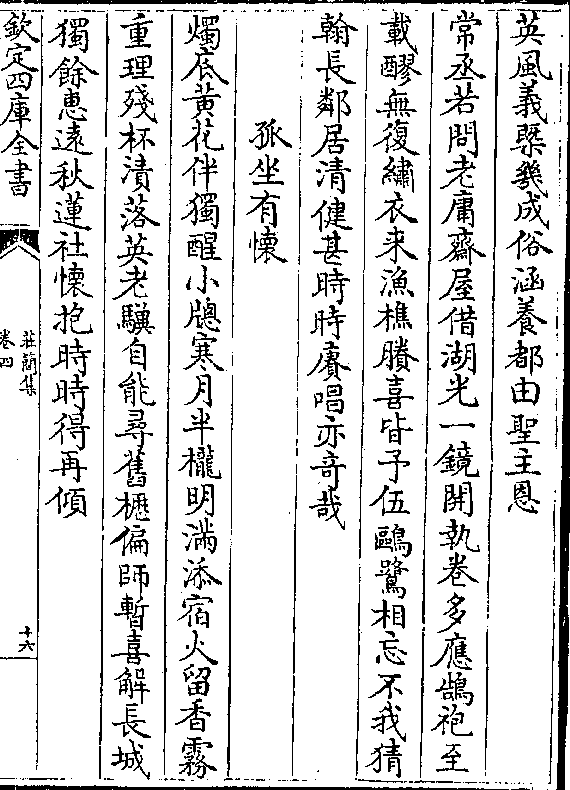 英風義槩幾成俗涵養都由聖主恩
常丞若問老庸齋屋借湖光一鏡開執卷多應鵠袍至
載醪無復繡衣来漁樵勝喜皆予伍鷗鷺相忘不我猜
翰長鄰居清健甚時時賡唱亦竒哉
孤坐有懐
燭底黄花伴獨醒小牕寒月半櫳明滿添宿火留香霧
重理殘杯漬落英老驥自能尋舊櫪偏師暫喜解長城
獨餘恵逺秋蓮社懐抱時時得再傾
欽定四庫全書
莊簡集
卷四
十六